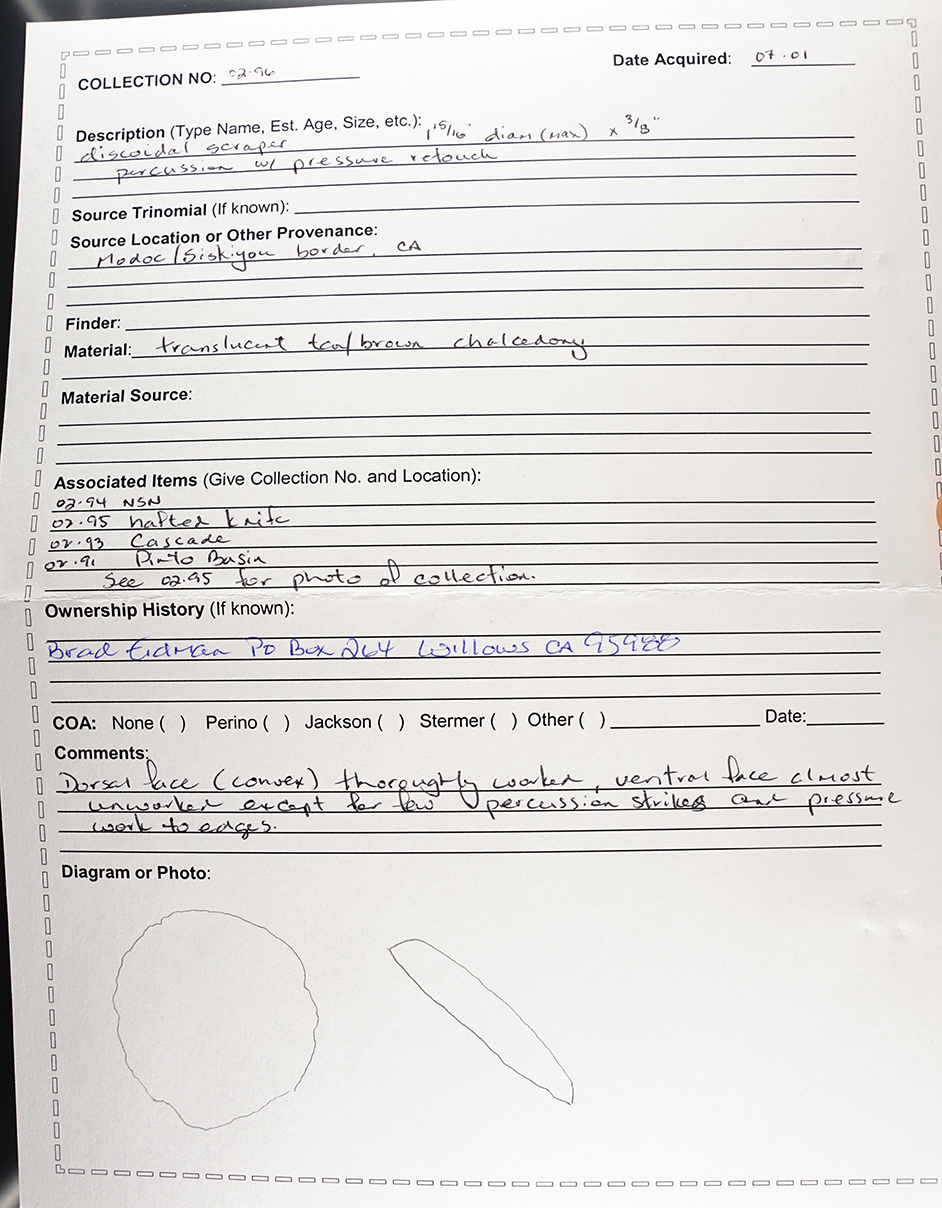 COLLECTION NO: 02.96
Date Acquired: 07.01
Description (Type Name, Est. Age, Size, etc.): 1 15/16" diam (max) x 3/8"
discoidal scraper
percussion w/ pressure retouch
Source Trinomial (If known):
Source Location or Other Provenance:
Modoc/Siskiyou border, CA
Finder:
Material: translucent tan/brown chalcedony
Material Source:
Associated Items (Give Collection No. and Location):
02.94 NSN
02.95 hafted knife
02.93 Cascade
02.91 Pinto Basin
See 02.95 for photo of collection.
Ownership History (If known):
Brad Eidman PO Box 264 Willows CA 95988
COA: None ( ) Perino ( ) Jackson ( ) Stermer ( ) Other ( ) Date:
Comments:
Dorsal face (convex) thoroughly worked, ventral face almost
unworked except for few percussion strikes and pressure
work to edges.
Diagram or Photo: